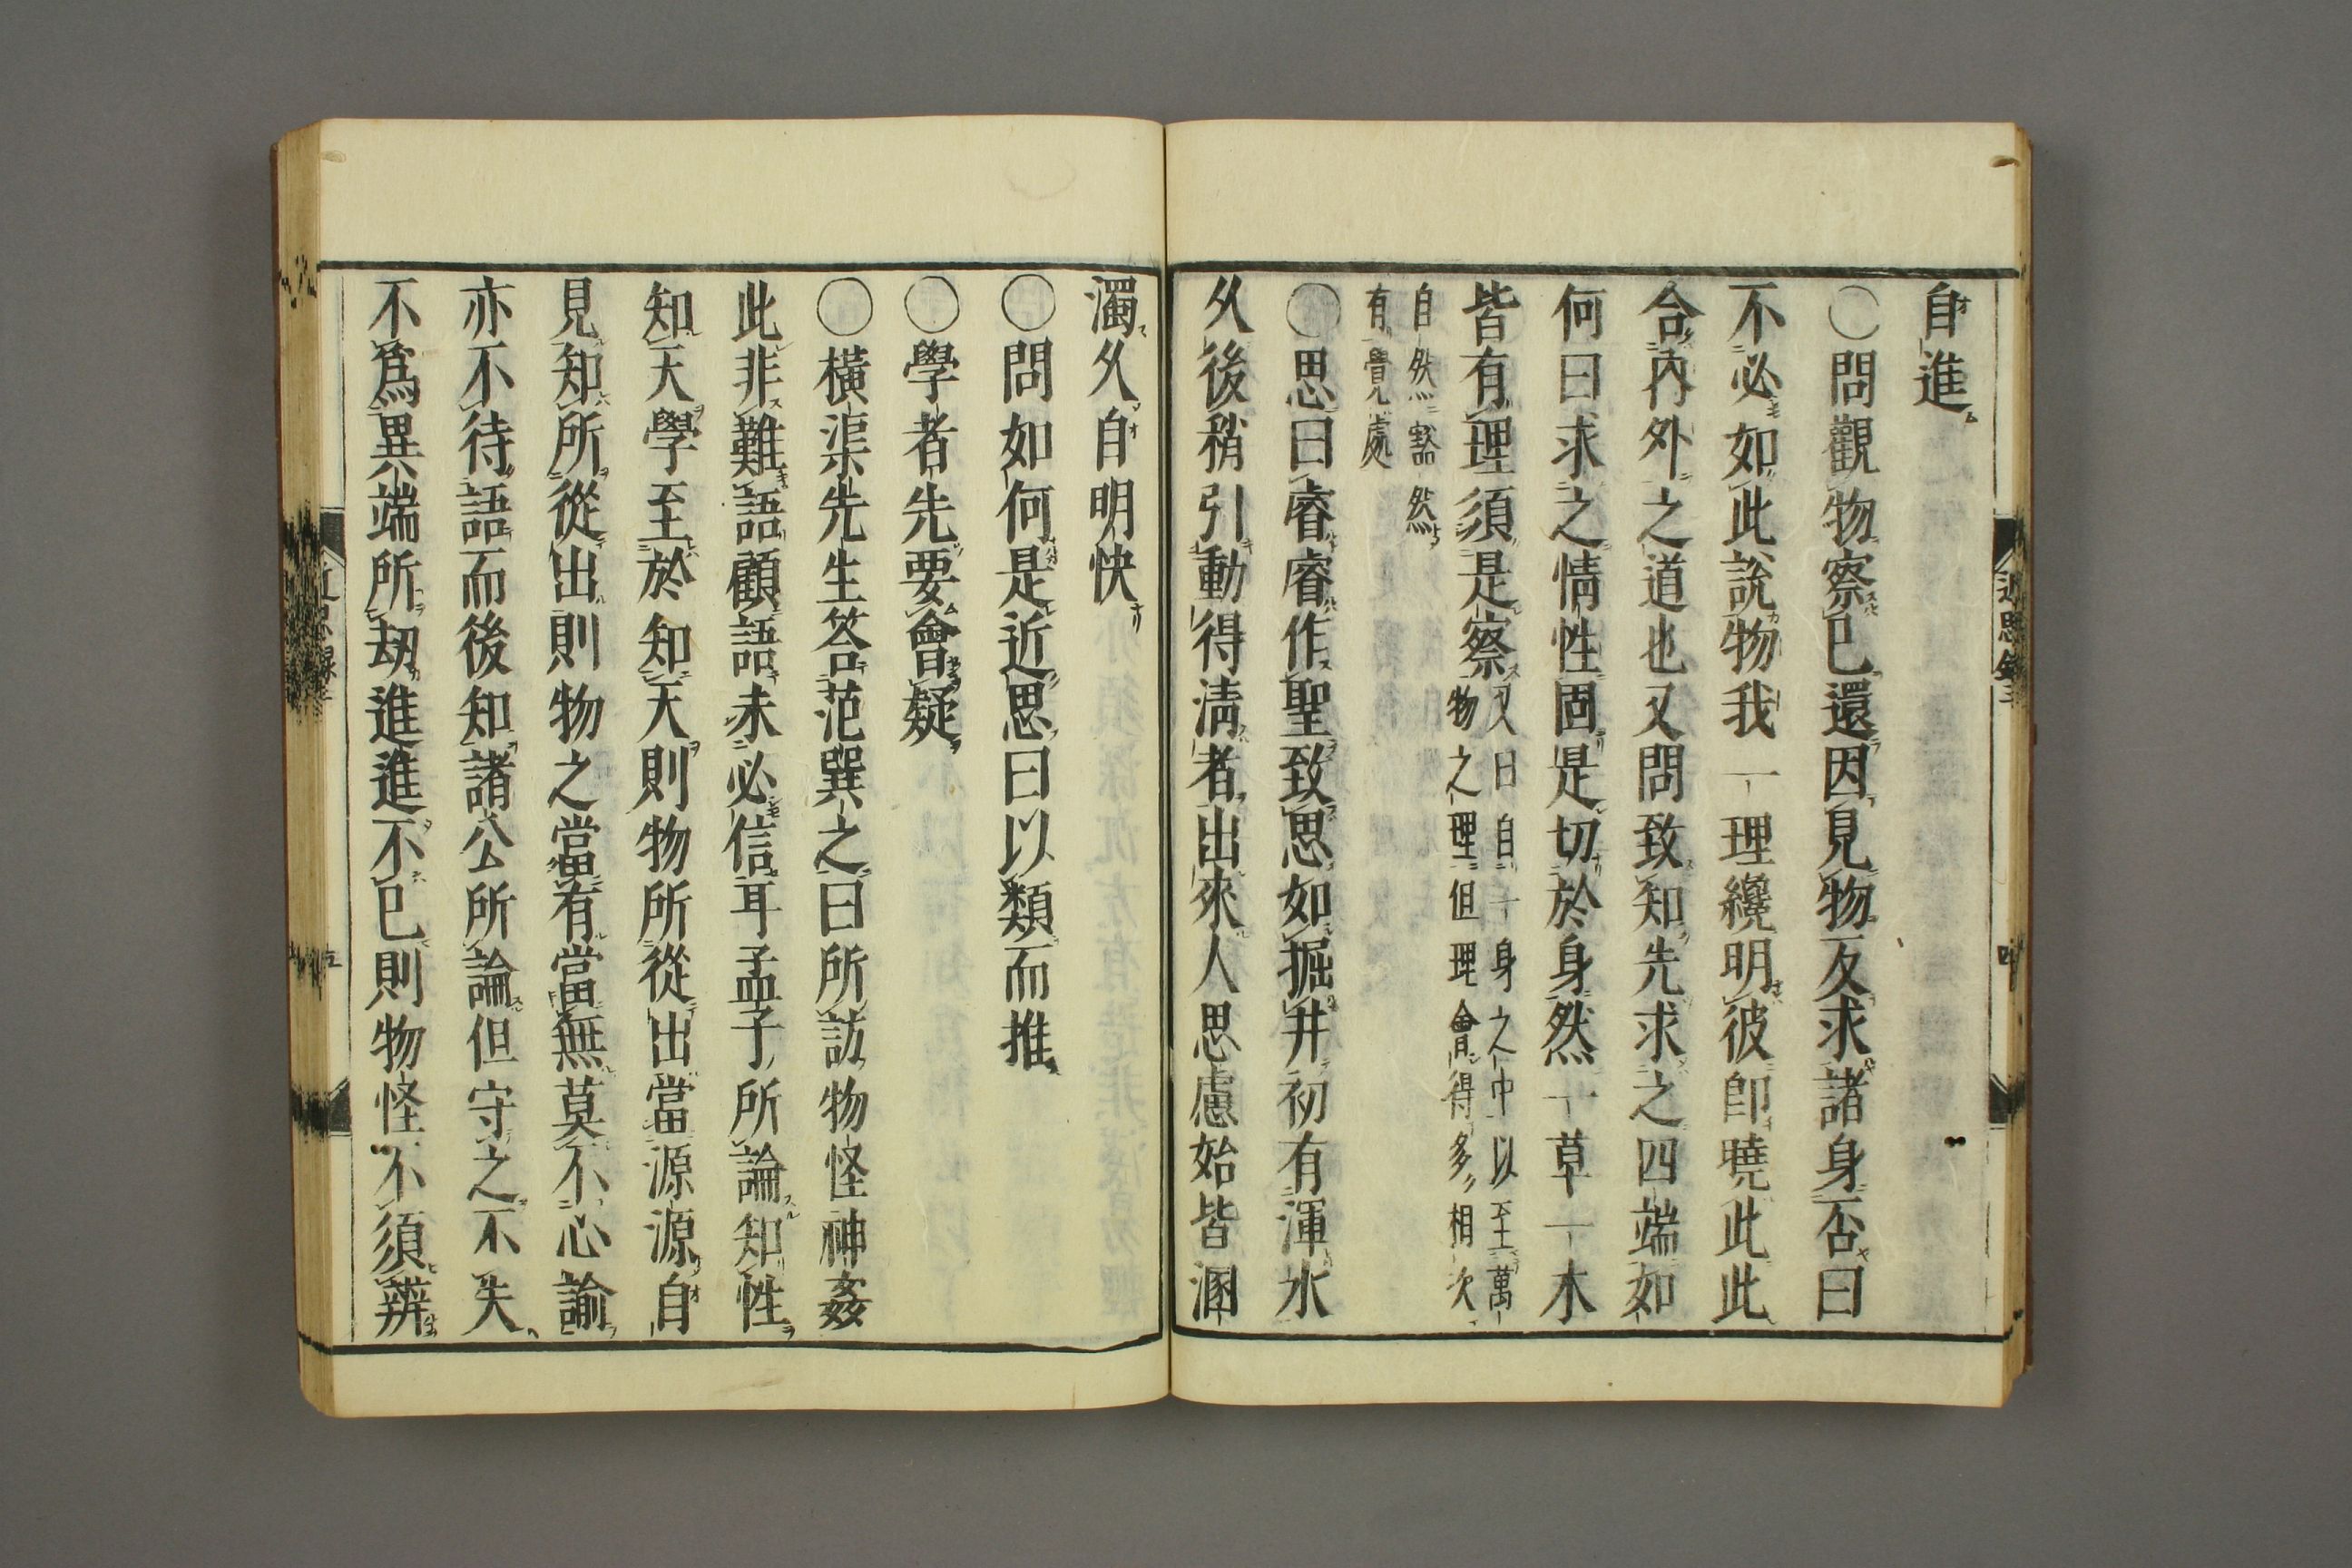 自進
〇問觀物察已還因見物反求諸身否曰
不必如此說物我一理纔明彼卽曉此此
合內外之道也又問致知先求之四端如
何曰求之情性固是切於身然一草一木
皆有理須是察
又曰自一身之中以至萬
物之理但理會得多相次
自然豁然
有覺處
〇思曰睿睿作聖致思如掘井初有渾水
久後稍引動得淸者出來人思慮始皆溷
濁久自明快
〇問如何是近思曰以類而推
〇學者先要會疑
〇橫渠先生答范巽之曰所訪物怪神姦
此非難語顧語未必信耳孟子所論知性
知天學至於知天則物所從出當源源自
見知所從出則物之當有當無莫不心諭
亦不待語而後知諸公所論但守之不失
不爲異端所刼進進不已則物怪不須辨
近思錄三
四
五